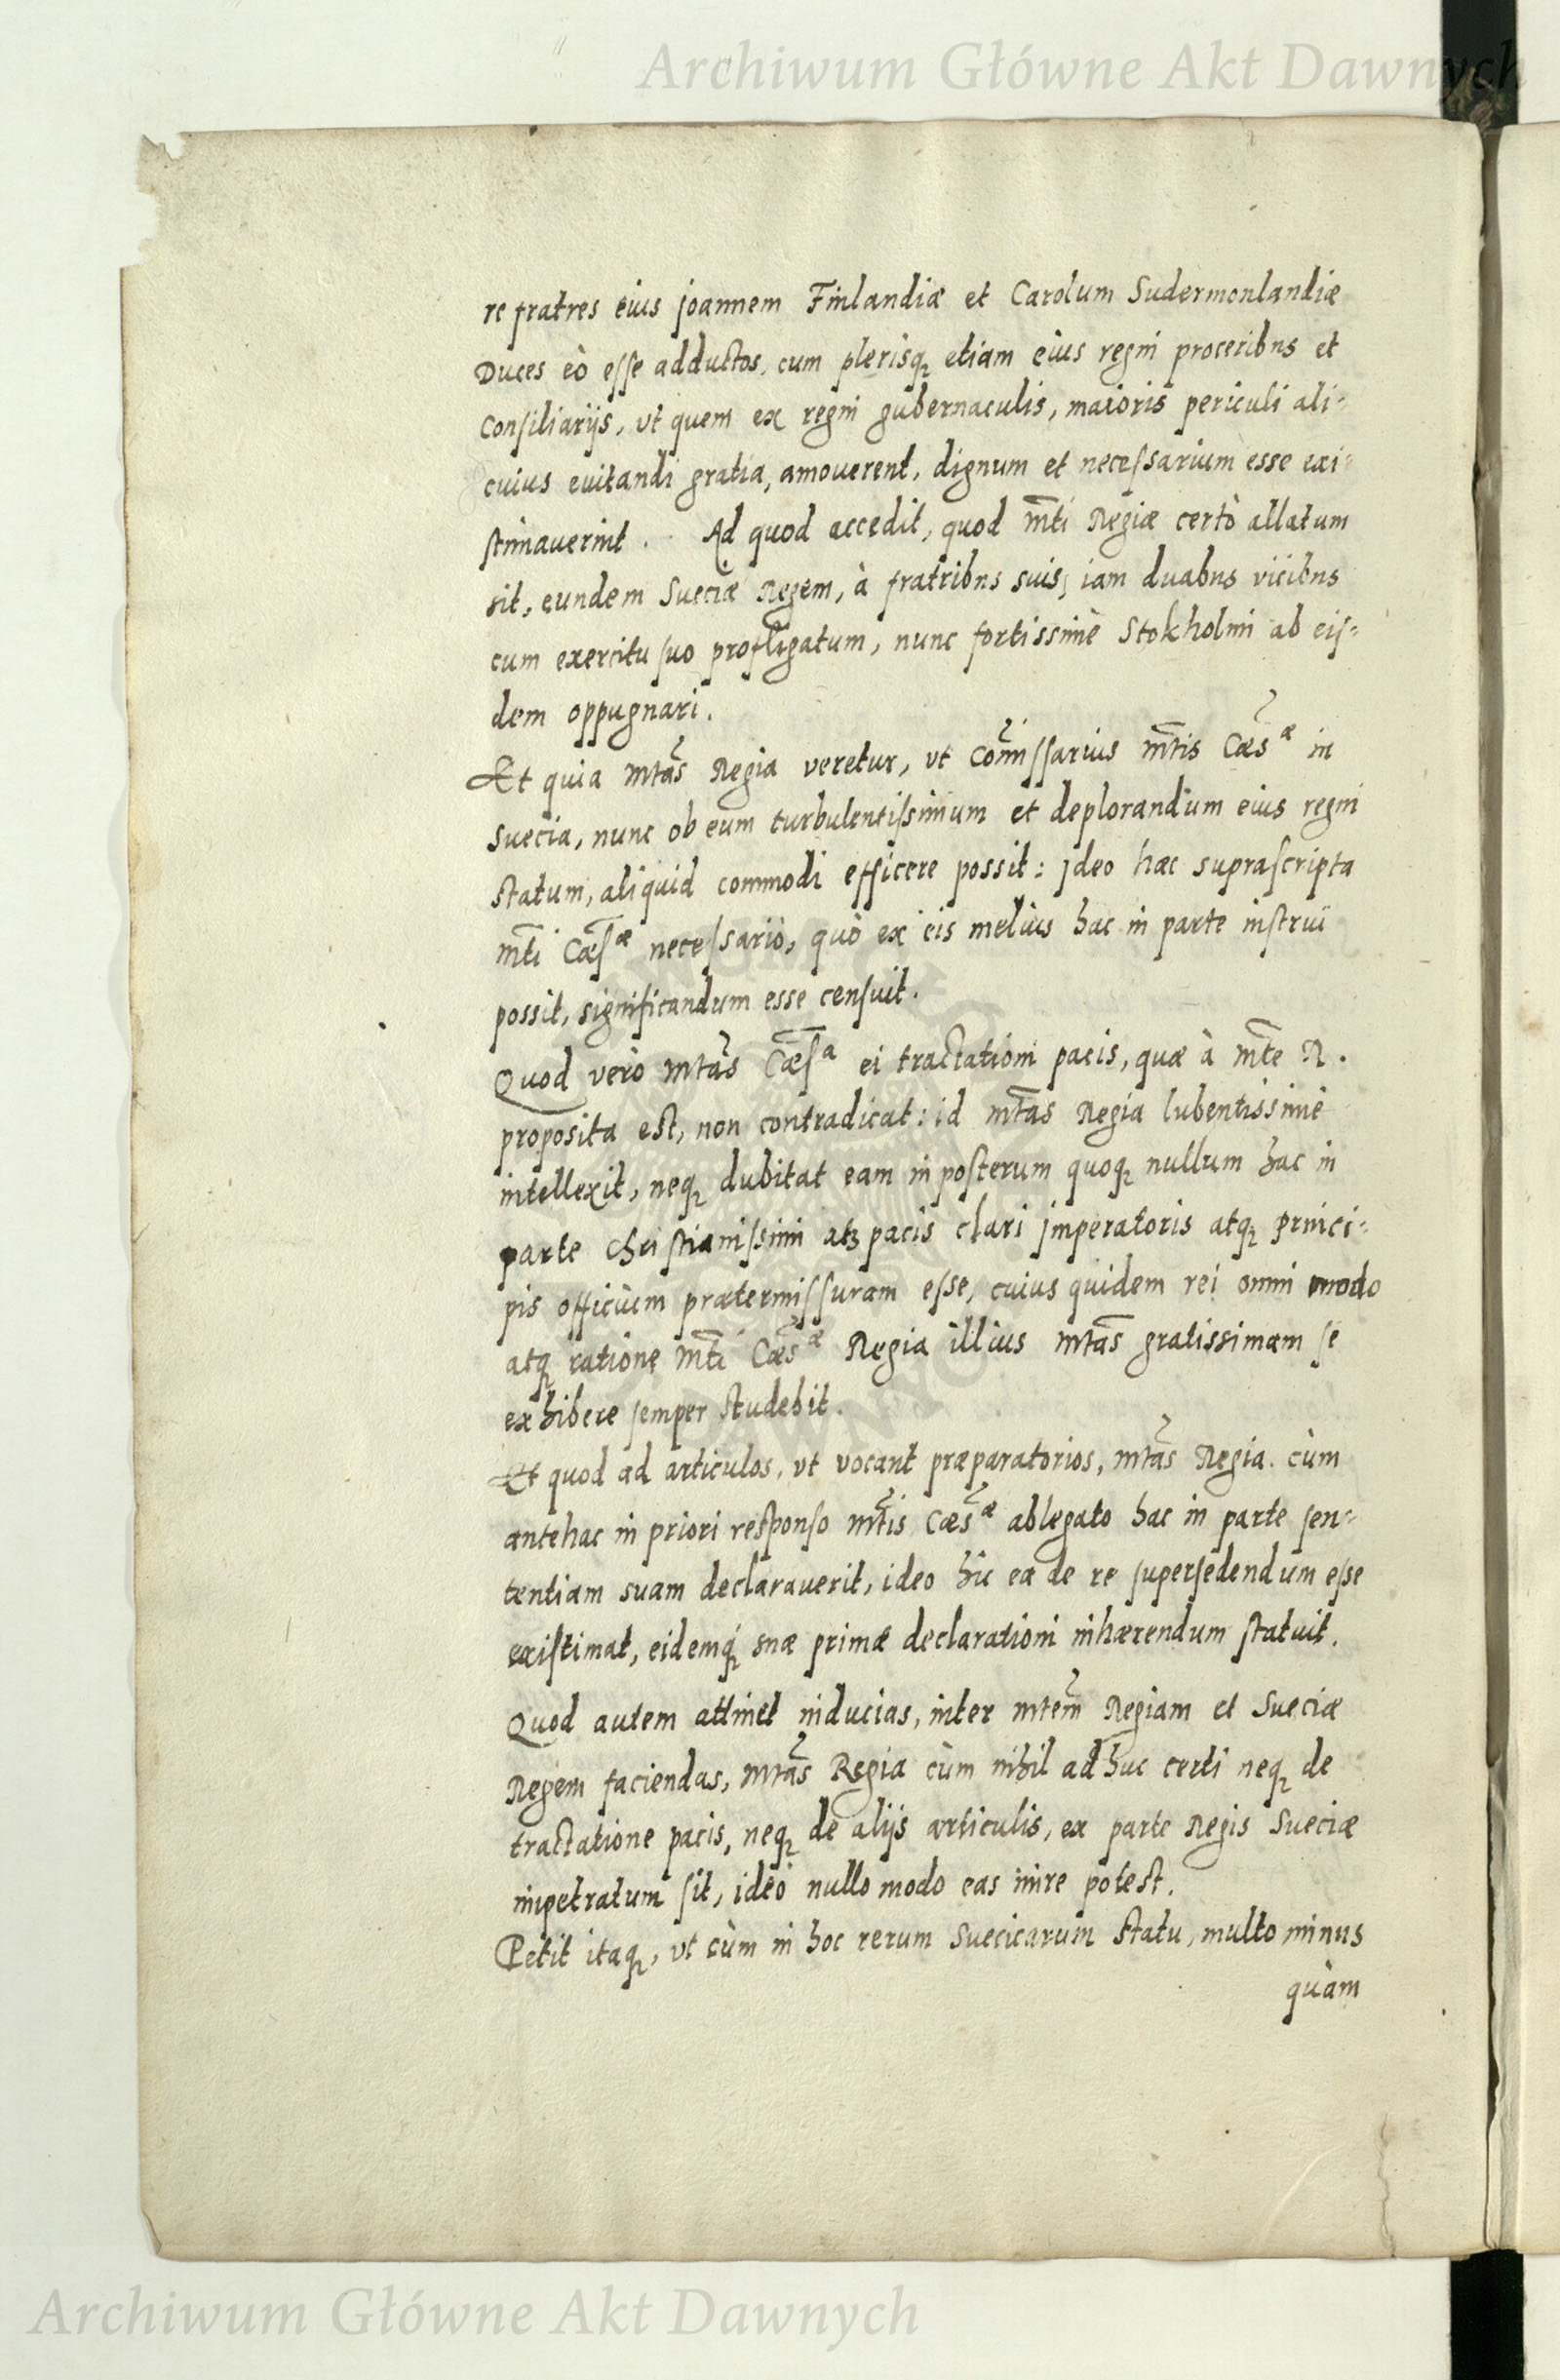 Archiwum Główne Akt Dawnych
re fratres eius joannem Finlandiæ et Carolum Sudermonlandiæ
Duces eò esse adductos, cum plerisq; etiam eius regni proceribus et
Consiliarijs, vt quem ex regni gubernaculis, maioris periculi ali-
cuius euitandi gratia, amouerent, dignum et necessarium esse exi-
stimauerint. Ad quod accedit, quod Mti Regiæ certò allatum
sit, eundem Sueciæ Regem, à fratribus suis, iam duabus vicibus
cum exercitu suo profligatum, nunc fortissimè Stokholmi ab eis-
dem oppugnari.
Et quia Mtas Regia veretur, vt Comissarius Mtis Cæsæ in
Suecia, nunc ob eum turbulentissimum et deplorandum eius regni
statum, aliquid commodi efficere possit: jdeo hæc suprascripta
Mti Cæsæ necessariò, quò ex eis melius hac in parte instrui
possit, significandum esse censuit.
Quod verò Mtas Cæsa ei tractationi pacis, quæ à Mte R.
proposita est, non contradicat: id Mtas Regia lubentissimè
intellexit, neq; dubitat eam in posterum quoq; nullum hac in
parte Christianissimi atq; pacis clari jmperatoris atq; princi-
pis officium prætermissuram esse, cuius quidem rei omni modo
atq; ratione Mti Cæsæ Regia illius Mtas gratissimam se
exhibere semper studebit.
Et quod ad articulos, vt vocant præparatorios, Mtas Regia. cùm
antehac in priori responso Mtis Cæsæ ablegato hac in parte sen-
tentiam suam declarauerit, ideo hic ea de re supersedendum esse
existimat, eidemq; suæ primæ declarationi inhærendum statuit.
Quod autem attinet inducias, inter Mtem Regiam et Sueciæ
Regem faciendas, Mtas Regia cùm nihil adhuc certi neq; de
tractatione pacis, neq; de alijs articulis, ex parte Regis Sueciæ
impetratum sit, ideò nullo modo eas inire potest.
Petit itaq;, vt cùm in hoc rerum Suecicarum statu, multo minus
quàm
Archiwum Główne Akt Dawnych